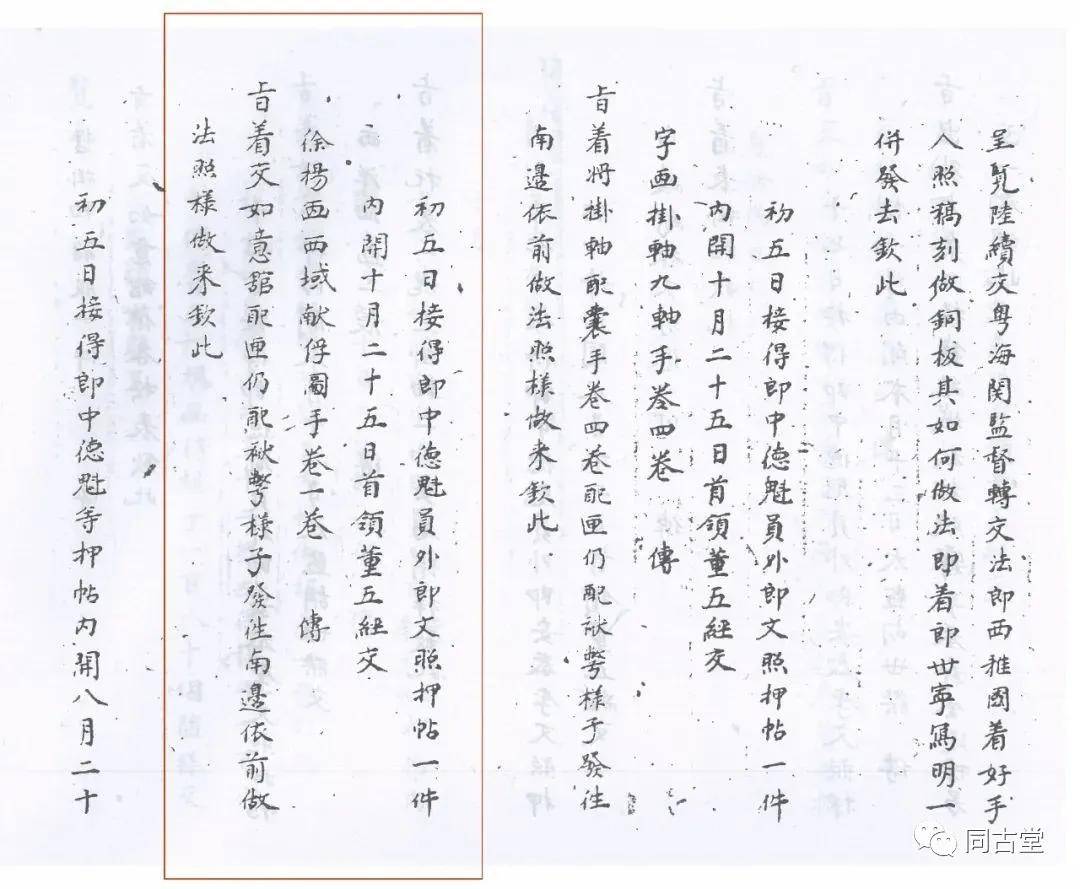 呈覧陸續交粤海関監督轉交法郎西雅國着好手
人照稿刻做銅板其如何做法即着郎世寧寫明一
併發去欽此
初五日接得郎中德魁員外郎文照押帖一件
内開十月二十五日首領董五経交
字画掛軸九軸手卷四卷 傳
㫖着将掛軸配囊手卷四卷配匣仍配袱彆様子發往
南邉依前做法照様做来欽此
初五日接得郎中德魁員外郎文照押帖一件
内開十月二十五日首領董五経交
徐揚画西域献俘圖手卷一卷 傳
㫖着交如意舘配匣仍配袱彆様子發往南邉依前做
法照様做来欽此
初五日接得郎中德魁等押帖内開八月二十
同古堂